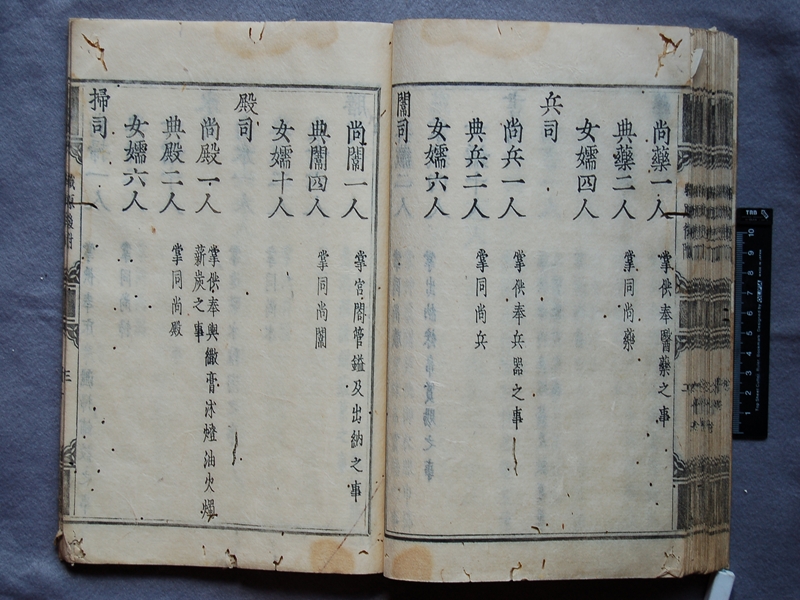 尚藥一人 掌供奉醫藥之事
典藥二人 掌同尚藥
女嬬四人
兵司
尚兵一人 掌供奉兵器之事
典兵二人 掌同尚兵
女嬬六人
闈司
尚闈一人 掌宮閤管鎰及出納之事
典闈四人 掌同尚闈
女嬬十人
殿司
尚殿一人 掌供奉輿繖膏沐燈油火燭
薪炭之事
典殿二人 掌同尚殿
女嬬六人
掃司